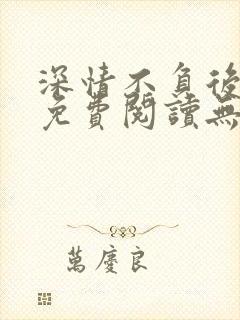 深情不負後
免費閱讀無
萬慶良